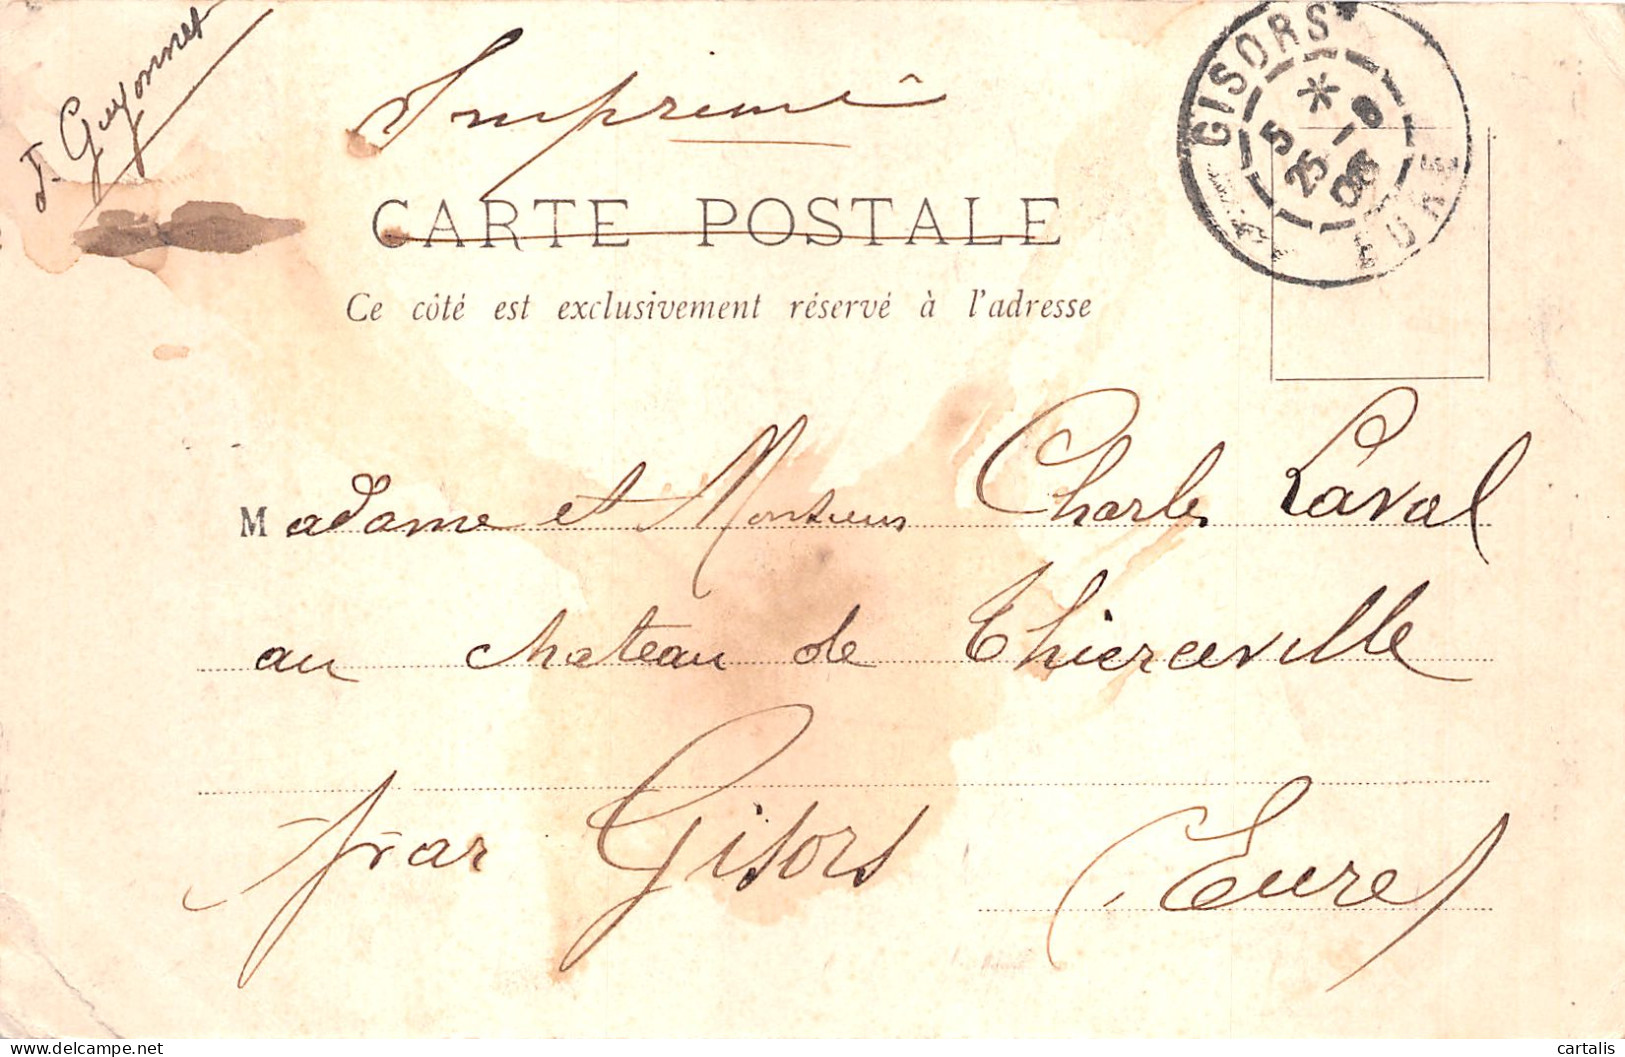 F. Guyonnet
Imprimé
CARTE POSTALE
Ce côté est exclusivement réservé à l'adresse
GISORS
5 * -9
25 06
EURE
Madame et Monsieur Charles Laval
au chateau de Thierceville
par Gisors (Eure)
posted on cartalis
cartalis